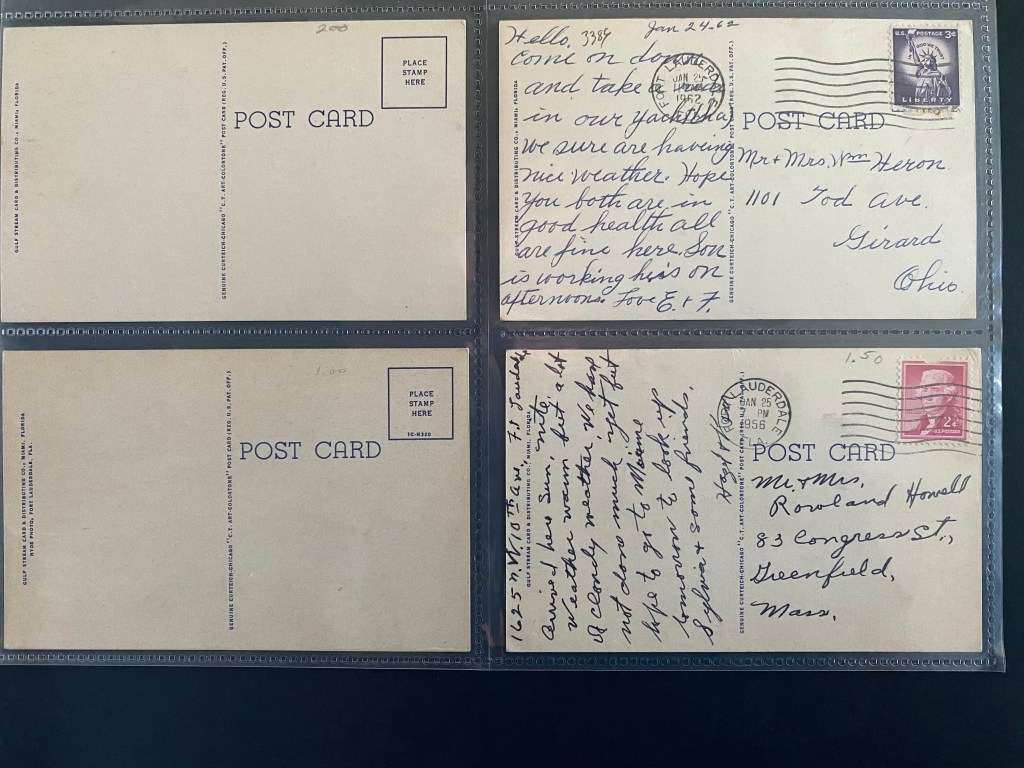 200
PLACE
STAMP
HERE
POST CARD
GULF STREAM CARD & DISTRIBUTING CO., MIAMI, FLORIDA
GENUINE CURTEICH-CHICAGO "C.T. ART-COLORTONE" POST CARD (REG. U.S. PAT. OFF.)
Hello, 3384 Jan 24-62
come on down
and take a
in our yacht(ha)
we sure are haveing
nice weather. Hope
you both are in
good health all
are fine here. Son
is working his on
afternoons Love E. & F.
GULF STREAM CARD & DISTRIBUTING CO., MIAMI, FLORIDA
GENUINE CURTEICH-CHICAGO "C.T. ART-COLORTONE" POST CARD (REG. U.S. PAT. OFF.)
FORT LAUDERDALE
JAN 25
1962
U.S. POSTAGE 3¢
IN GOD WE TRUST
LIBERTY
POST CARD
Mr & Mrs. Wm Heron
1101 Tod Ave.
Girard
Ohio.
1.00
PLACE
STAMP
HERE
1C-H320
POST CARD
GULF STREAM CARD & DISTRIBUTING CO., MIAMI, FLORIDA
HYDE PHOTO, FORT LAUDERDALE, FLA.
GENUINE CURTEICH-CHICAGO "C.T. ART-COLORTONE" POST CARD (REG. U.S. PAT. OFF.)
1625 N.W. 10th Ave, Ft Lauderdale
arrived here Sun, nite,
Weather warm but a lot
of cloudy weather, We have
not done much yet but
hope to go to Miami
tomorrow to look up
Sylvia & some friends.
GULF STREAM CARD & DISTRIBUTING CO., MIAMI, FLORIDA
GENUINE CURTEICH-CHICAGO "C.T. ART-COLORTONE" POST CARD (REG. U.S. PAT. OFF.)
1.50
LAUDERDALE
JAN 25
PM
1956
FLA.
2¢
U.S. POSTAGE
POST CARD
Mr. & Mrs.
Rowland Howell
83 Congress St.,
Greenfield,
Mass.